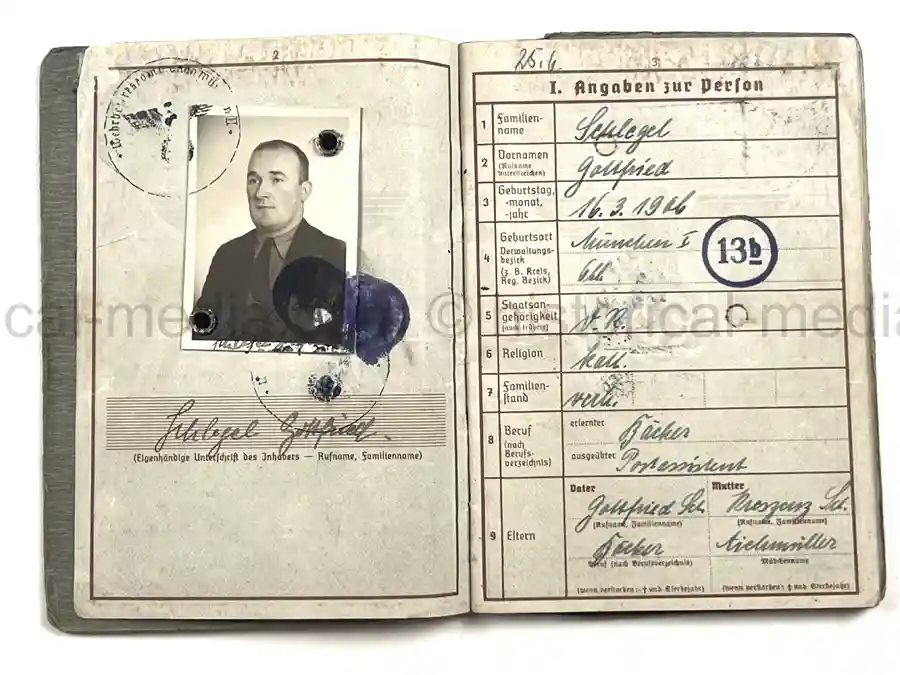 2
Schlegel Gottfried
(Eigenhändige Unterschrift des Inhabers — Rufname, Familienname)
25.6.
3
I. Angaben zur Person
1 Familien-
name
Schlegel
2 Vornamen
(Rufname
unterstreichen)
Gottfried
3 Geburtstag,
-monat,
-jahr
16.3.1906
4 Geburtsort
Verwaltungs-
bezirk
(z. B. Kreis,
Reg. Bezirk)
München I
13b
5 Staatsan-
gehörigkeit
(auch frühere)
D.R.
6 Religion
kath.
7 Familien-
stand
verh.
8 Beruf
(nach
Berufs-
verzeichnis)
erlernter
Bäcker
ausgeübter
Postassistent
9 Eltern
Vater
Gottfried Sch.
(Rufname, Familienname)
Bäcker
Beruf (nach Berufsverzeichnis)
(wenn verstorben: † und Sterbejahr)
Mutter
Kreszenz Sch.
(Rufname, Familienname)
Aichmüller
Mädchenname
(wenn verstorben: † und Sterbejahr)
cal-media © historical-media